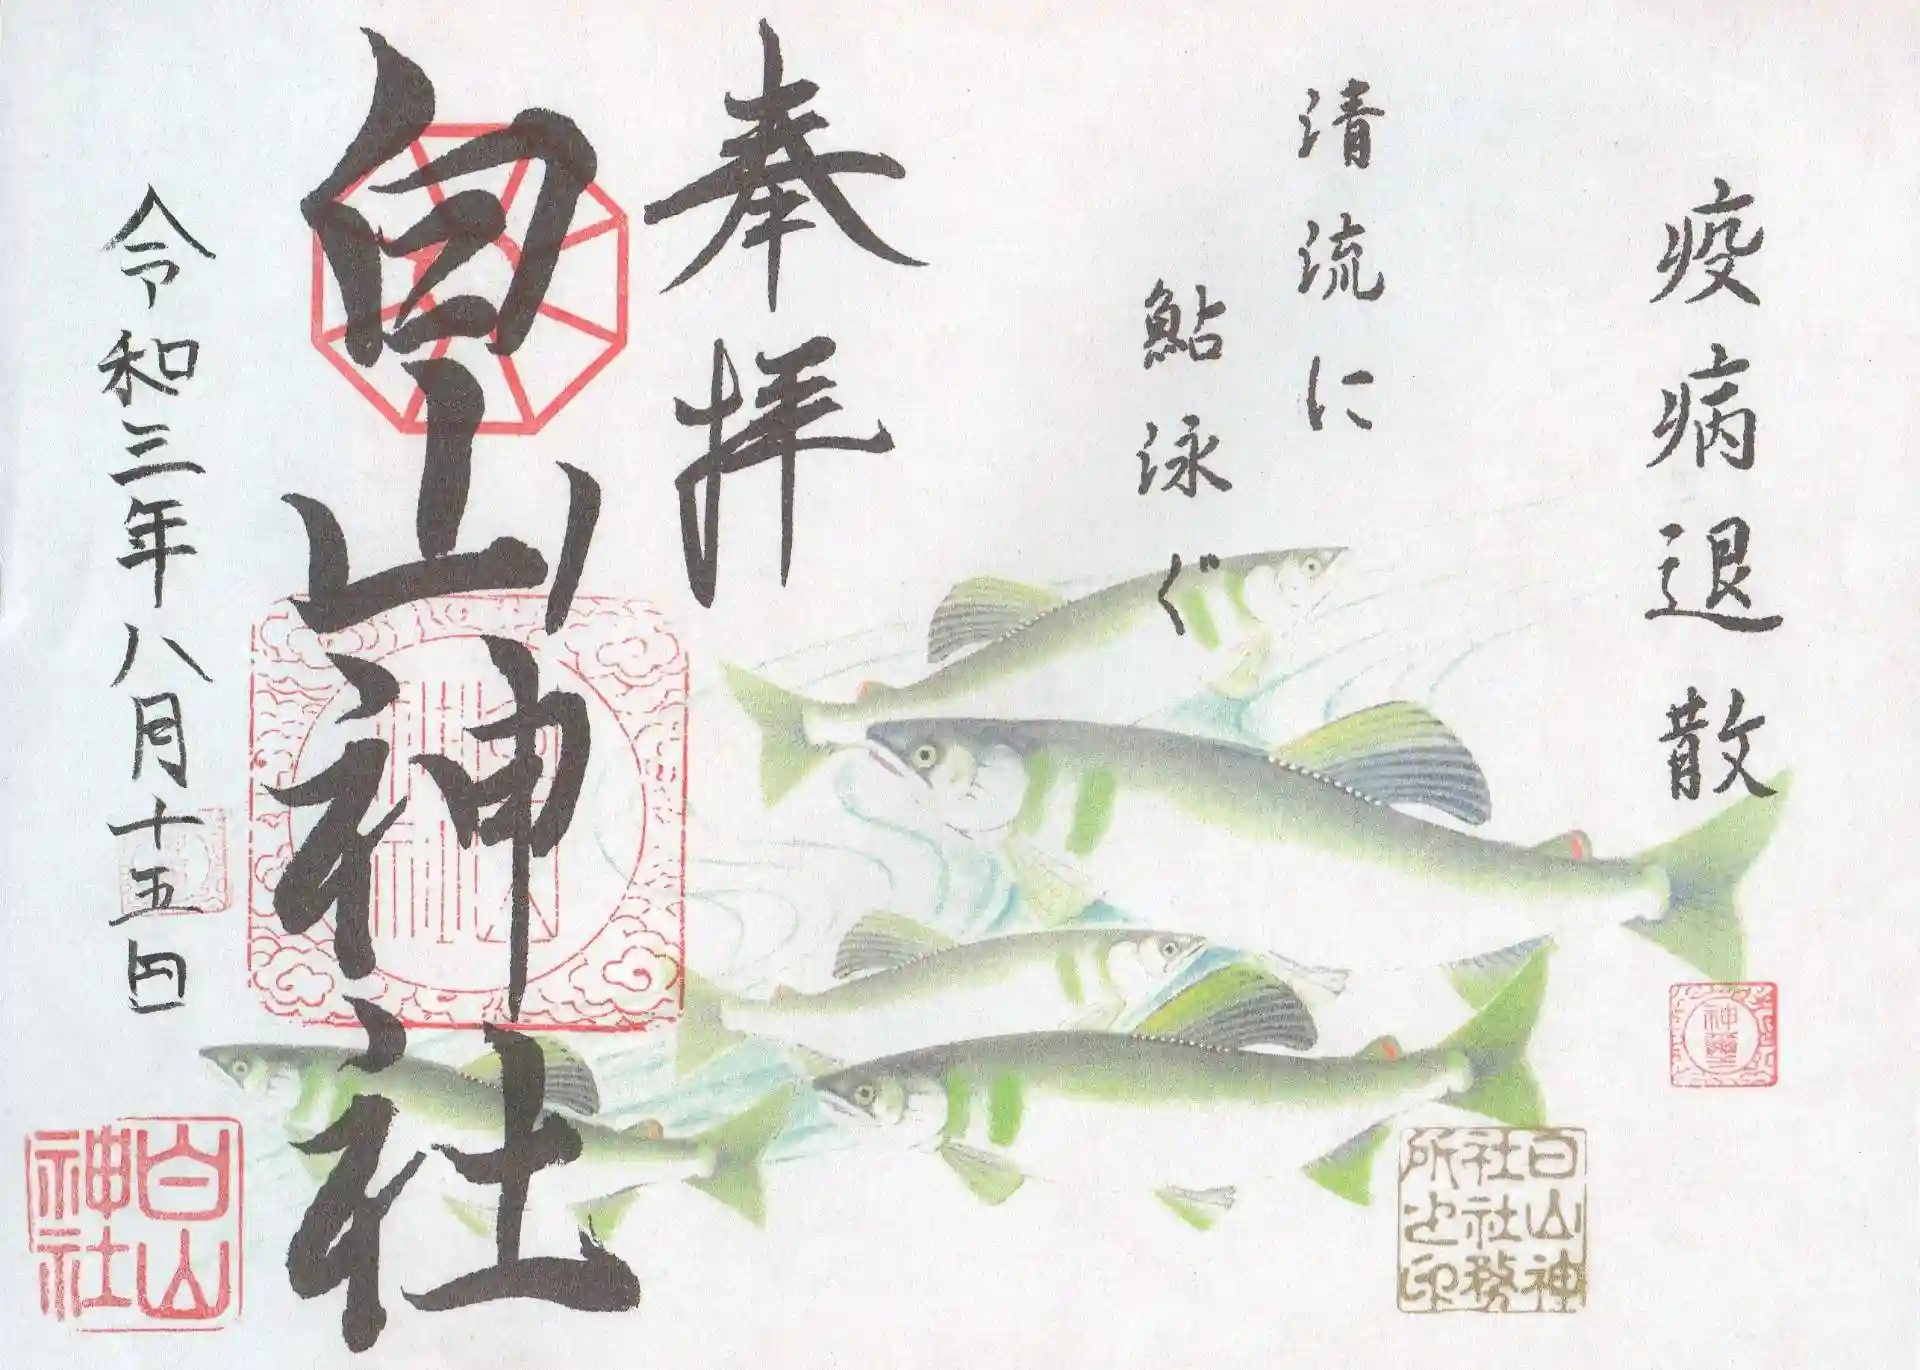 疫病退散
清流に
鮎泳ぐ
奉拝
白山神社
令和三年八月十五日
白山神社
白山神社社務所之印